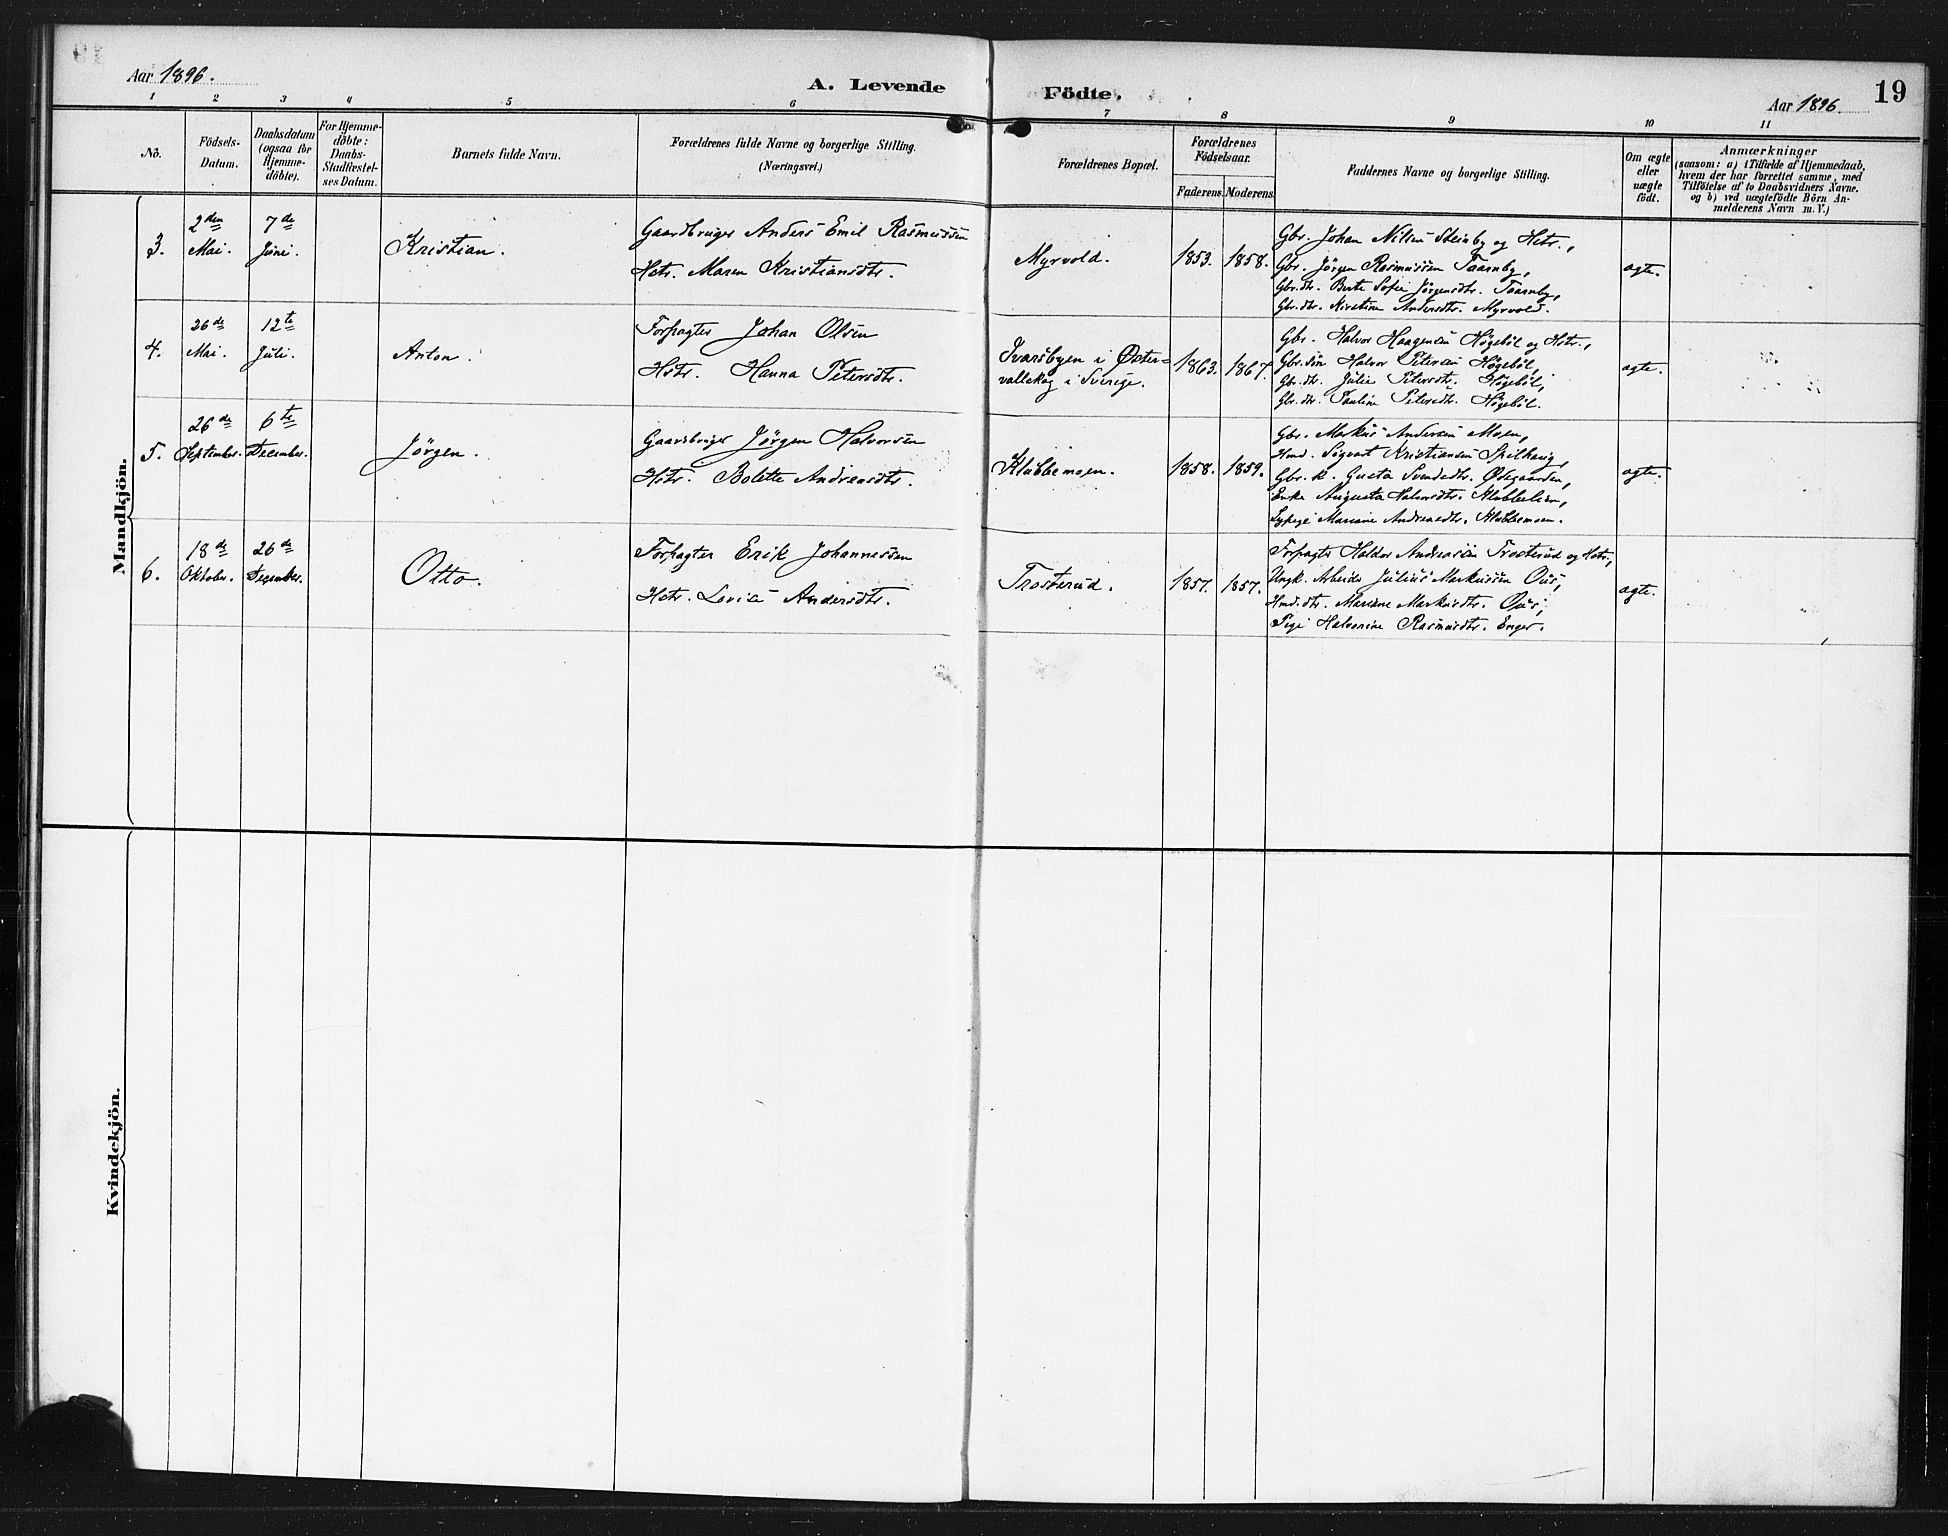 Aar 1896.
A. Levende Födte.
Aar 1896.
19
1 2 3 4 5 6 7 8 9 10 11
No.
Födsels-
Datum.
Daabsdatum
(ogsaa for
Hjemme-
döbte).
For Hjemme-
döbte:
Daabs-
Stadfestel-
ses Datum.
Barnets fulde Navn.
Forældrenes fulde Navne og borgerlige Stilling.
(Næringsvei.)
Forældrenes Bopæl.
Forældrenes
Födselsaar.
Faderens. Moderens.
Faddernes Navne og borgerlige Stilling.
Om ægte
eller
uægte
födt.
Anmærkninger
(saasom: a) i Tilfælde af Hjemmedaab,
hvem der har forrettet samme, med
Tilföielse af to Daabsvidners Navne.
og b) ved uægtefödte Börn An-
melderens Navn m. V.)
Mandkjön.
3.
2den
Mai.
7de
Juni.
Kristian.
Gaardbruger Anders Emil Rasmussen
Hstr. Maren Kristiansdtr.
Myrvold.
1853. 1858.
Gbr. Johan Nilsen Steinby og Hstr.,
Gbr. Jörgen Rasmussen Taarnby,
Gbr.dtr. Berte Sofie Jörgensdtr. Taarnby,
Gbr.dtr. Kirstine Andersdtr. Myrvold.
ægte.
4.
26de
Mai.
12te
Juli.
Anton.
Forpagter Johan Olsen
Hstr. Hanna Petersdtr.
Ivarsbyen i Øster-
vallskog i Sverige.
1863. 1867.
Gbr. Halvor Haagensen Högeböl og Hstr.,
Gbr.sön Halvor Petersen Högeböl,
Gbr.dtr. Julie Petersdtr. Högeböl,
Gbr.dtr. Pauline Petersdtr. Högeböl.
ægte.
5.
26de
September.
6te
December.
Jörgen.
Gaardbruger Jörgen Halvorsen
Hstr. Bolette Andreasdtr.
Klubbemoen.
1858. 1859.
Gbr. Markus Andersen Moen,
Hmd. Sigvart Kristiansen Spilhaug,
Gbr. k. Gusta Svendsdtr. Ødegaarden,
Enke Augusta Halvorsdtr. Klubbelien,
Sypige Mariane Andreasdtr. Klubbemoen.
ægte.
6.
18de
Oktober.
26de
December.
Otto.
Forpagter Erik Johannesen
Hstr. Lovisa Andersdtr.
Trosterud.
1857. 1857.
Forpagter Haldor Andreasen Trosterud og Hstr.,
Ungk. Arbeider Julius Markussen Ous,
Hmd.dtr. Mariane Markusdtr. Ous,
Pige Halvorine Rasmusdtr. Enger.
ægte.
Kvindekjön.